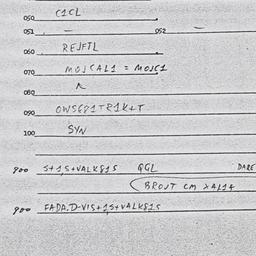 050 C1CL
051 — 052 —
060 REJFTL
070 MOJCAL1 = MOJC1
080
090 OWS681TR1K+T
100 SYN
900 S+1,S+VALK81S QGL DARE
BROJT CM
900 FADA.D-VIS+1S+VALK81S